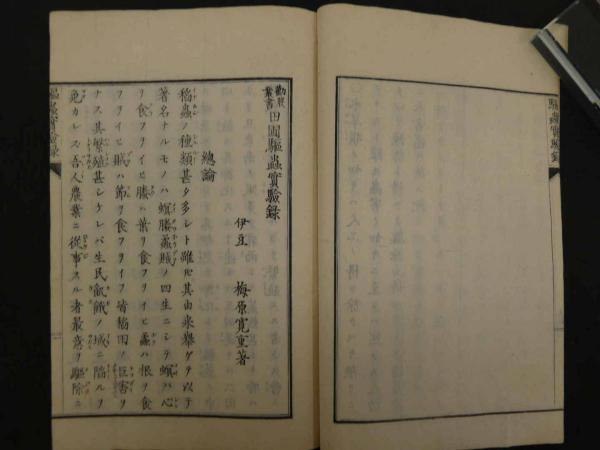 勸農叢書 田圃驅蟲實驗録
伊豆 梅原寛重著
總論
稻蟲ノ種類甚タ多シト雖𪜈其由来舉ケテ以テ
著名ナルモノハ螟螣蟊賊ノ四生ニシテ螟ハ心
ヲ食フヲイヒ螣ハ葉ヲ食フヲイヒ蟊ハ根ヲ食
フヲイヒ賊ハ節ヲ食フヲイフ皆稻田ノ巨害ヲ
ナス其繁殖甚シケレバ生民飢餓ノ域ニ陷ルヲ
免カレズ吾人農業ニ從事スル者最意ヲ驅除ニ
驅蟲實驗録
驅蟲實驗録